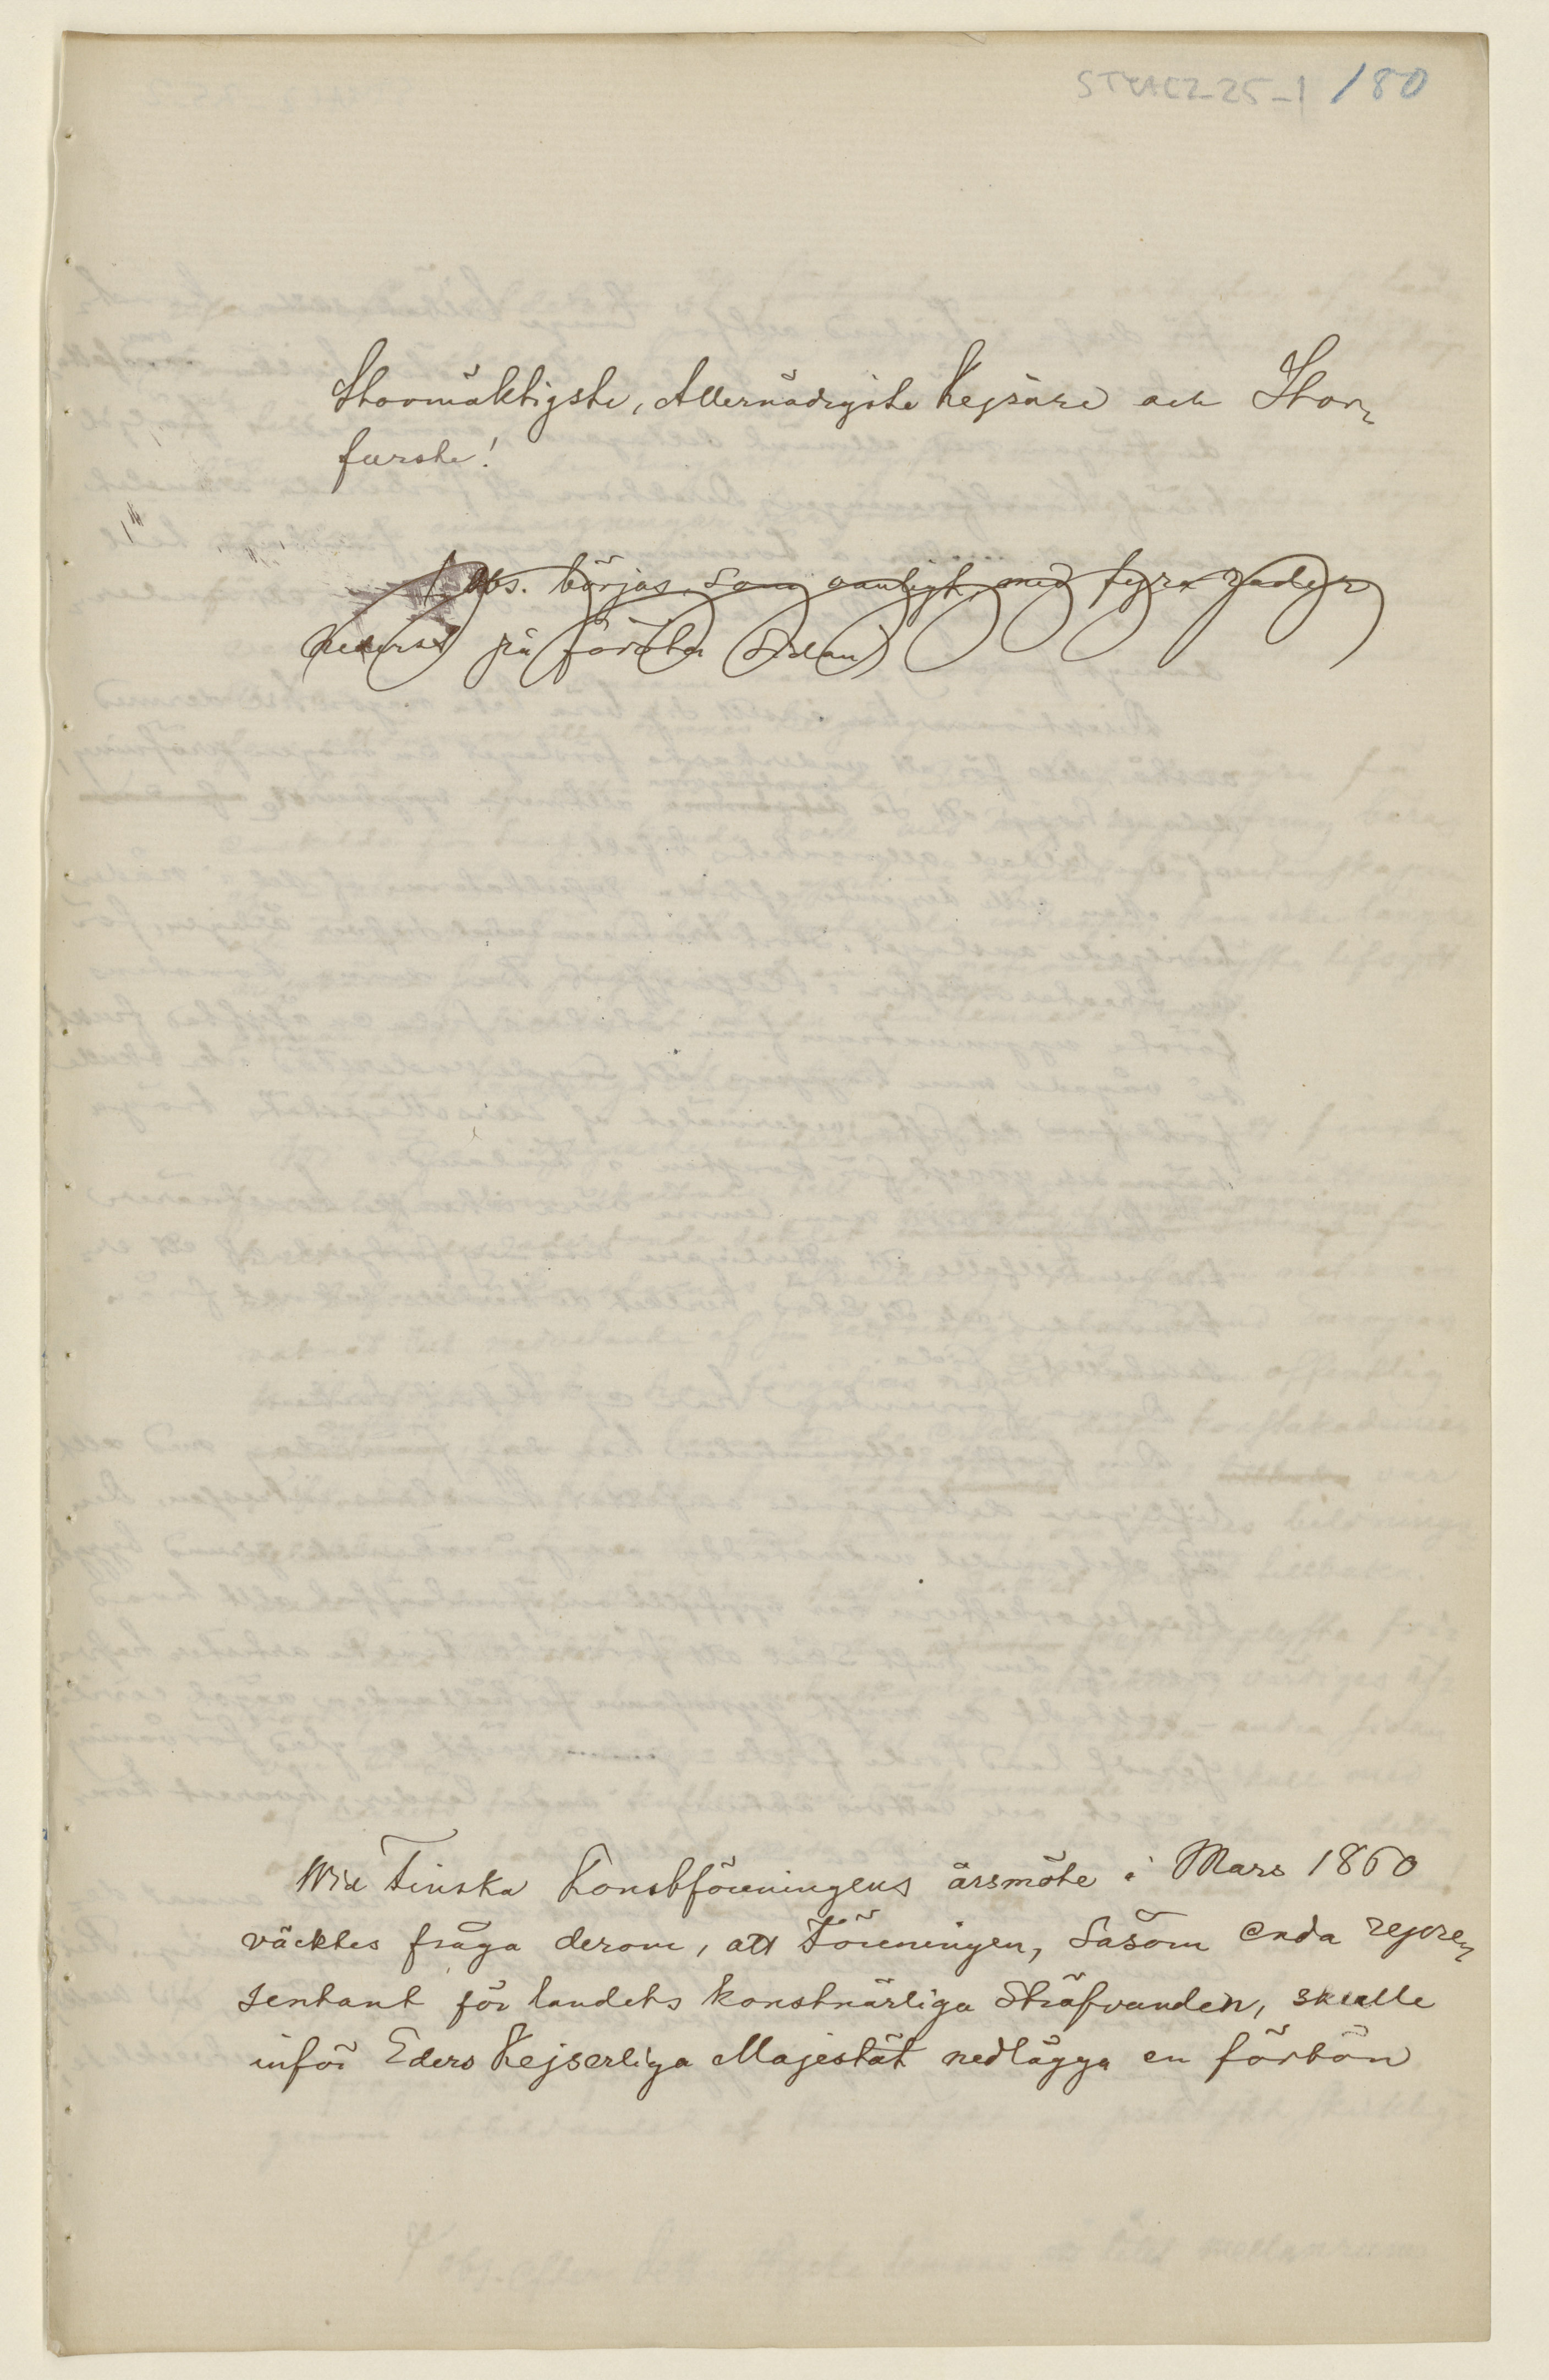 STYACZ-25-1 /80
Stormäktigste, Allernådigste Kejsare och Stor-
furste!
(obs. börjas, som vanligt, med fyra rader
nederst på första sidan)
Wid Finska Konstföreningens årsmöte i Mars 1860
väcktes fråga derom, att Föreningen, såsom enda repre-
sentant för landets konstnärliga sträfvanden, skulle
inför Eders Kejserliga Majestät nedlägga en förbön